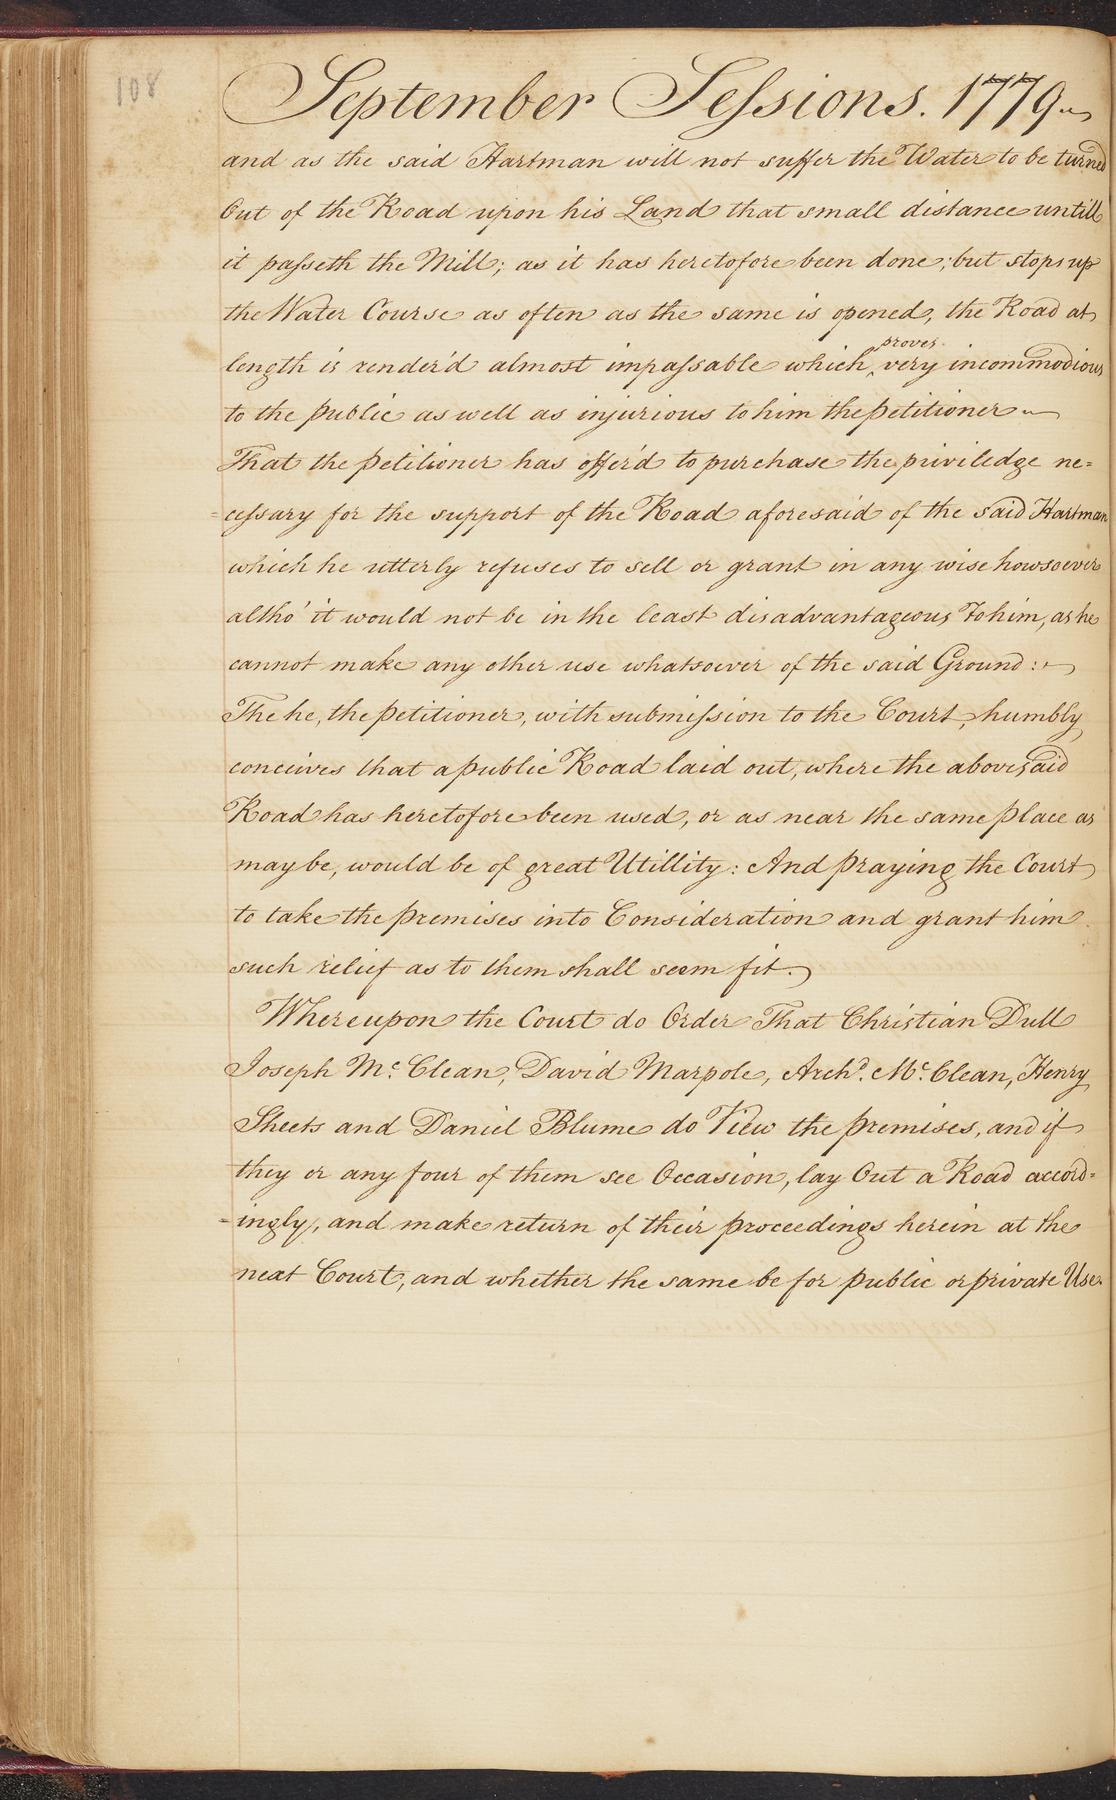 108
September Sessions. 1779
and as the said Hartman will not suffer the Water to be turned
Out of the Road upon his Land that small distance untill
it passeth the Mill; as it has heretofore been done; but stops up
the Water Course as often as the same is opened, the Road at
proves
length is render'd almost impassable which ‸ very incommodious
to the public as well as injurious to him the petitioner
That the petitioner has offer'd to purchase the priviledge ne=
=cessary for the support of the Road aforesaid of the said Hartman
which he utterly refuses to sell or grant in any wise howsoever
altho' it would not be in the least disadvantageous To him, as he
cannot make any other use whatsoever of the said Ground:
The he, the petitioner, with submission to the Court, humbly
conceives that a public Road laid out, where the abovesaid
Road has heretofore been used, or as near the same place as
may be, would be of great Utillity: And praying the Court
to take the premises into Consideration and grant him
such relief as to them shall seem fit.
Whereupon the Court do Order That Christian Dull
Joseph Mc. Clean, David Marpole, Archd. Mc. Clean, Henry
Sheets and Daniel Blume do View the premises, and if
they or any four of them see Occasion, lay Out a Road accord=
=ingly, and make return of their proceedings herein at the
next Court, and whether the same be for public or private Use.